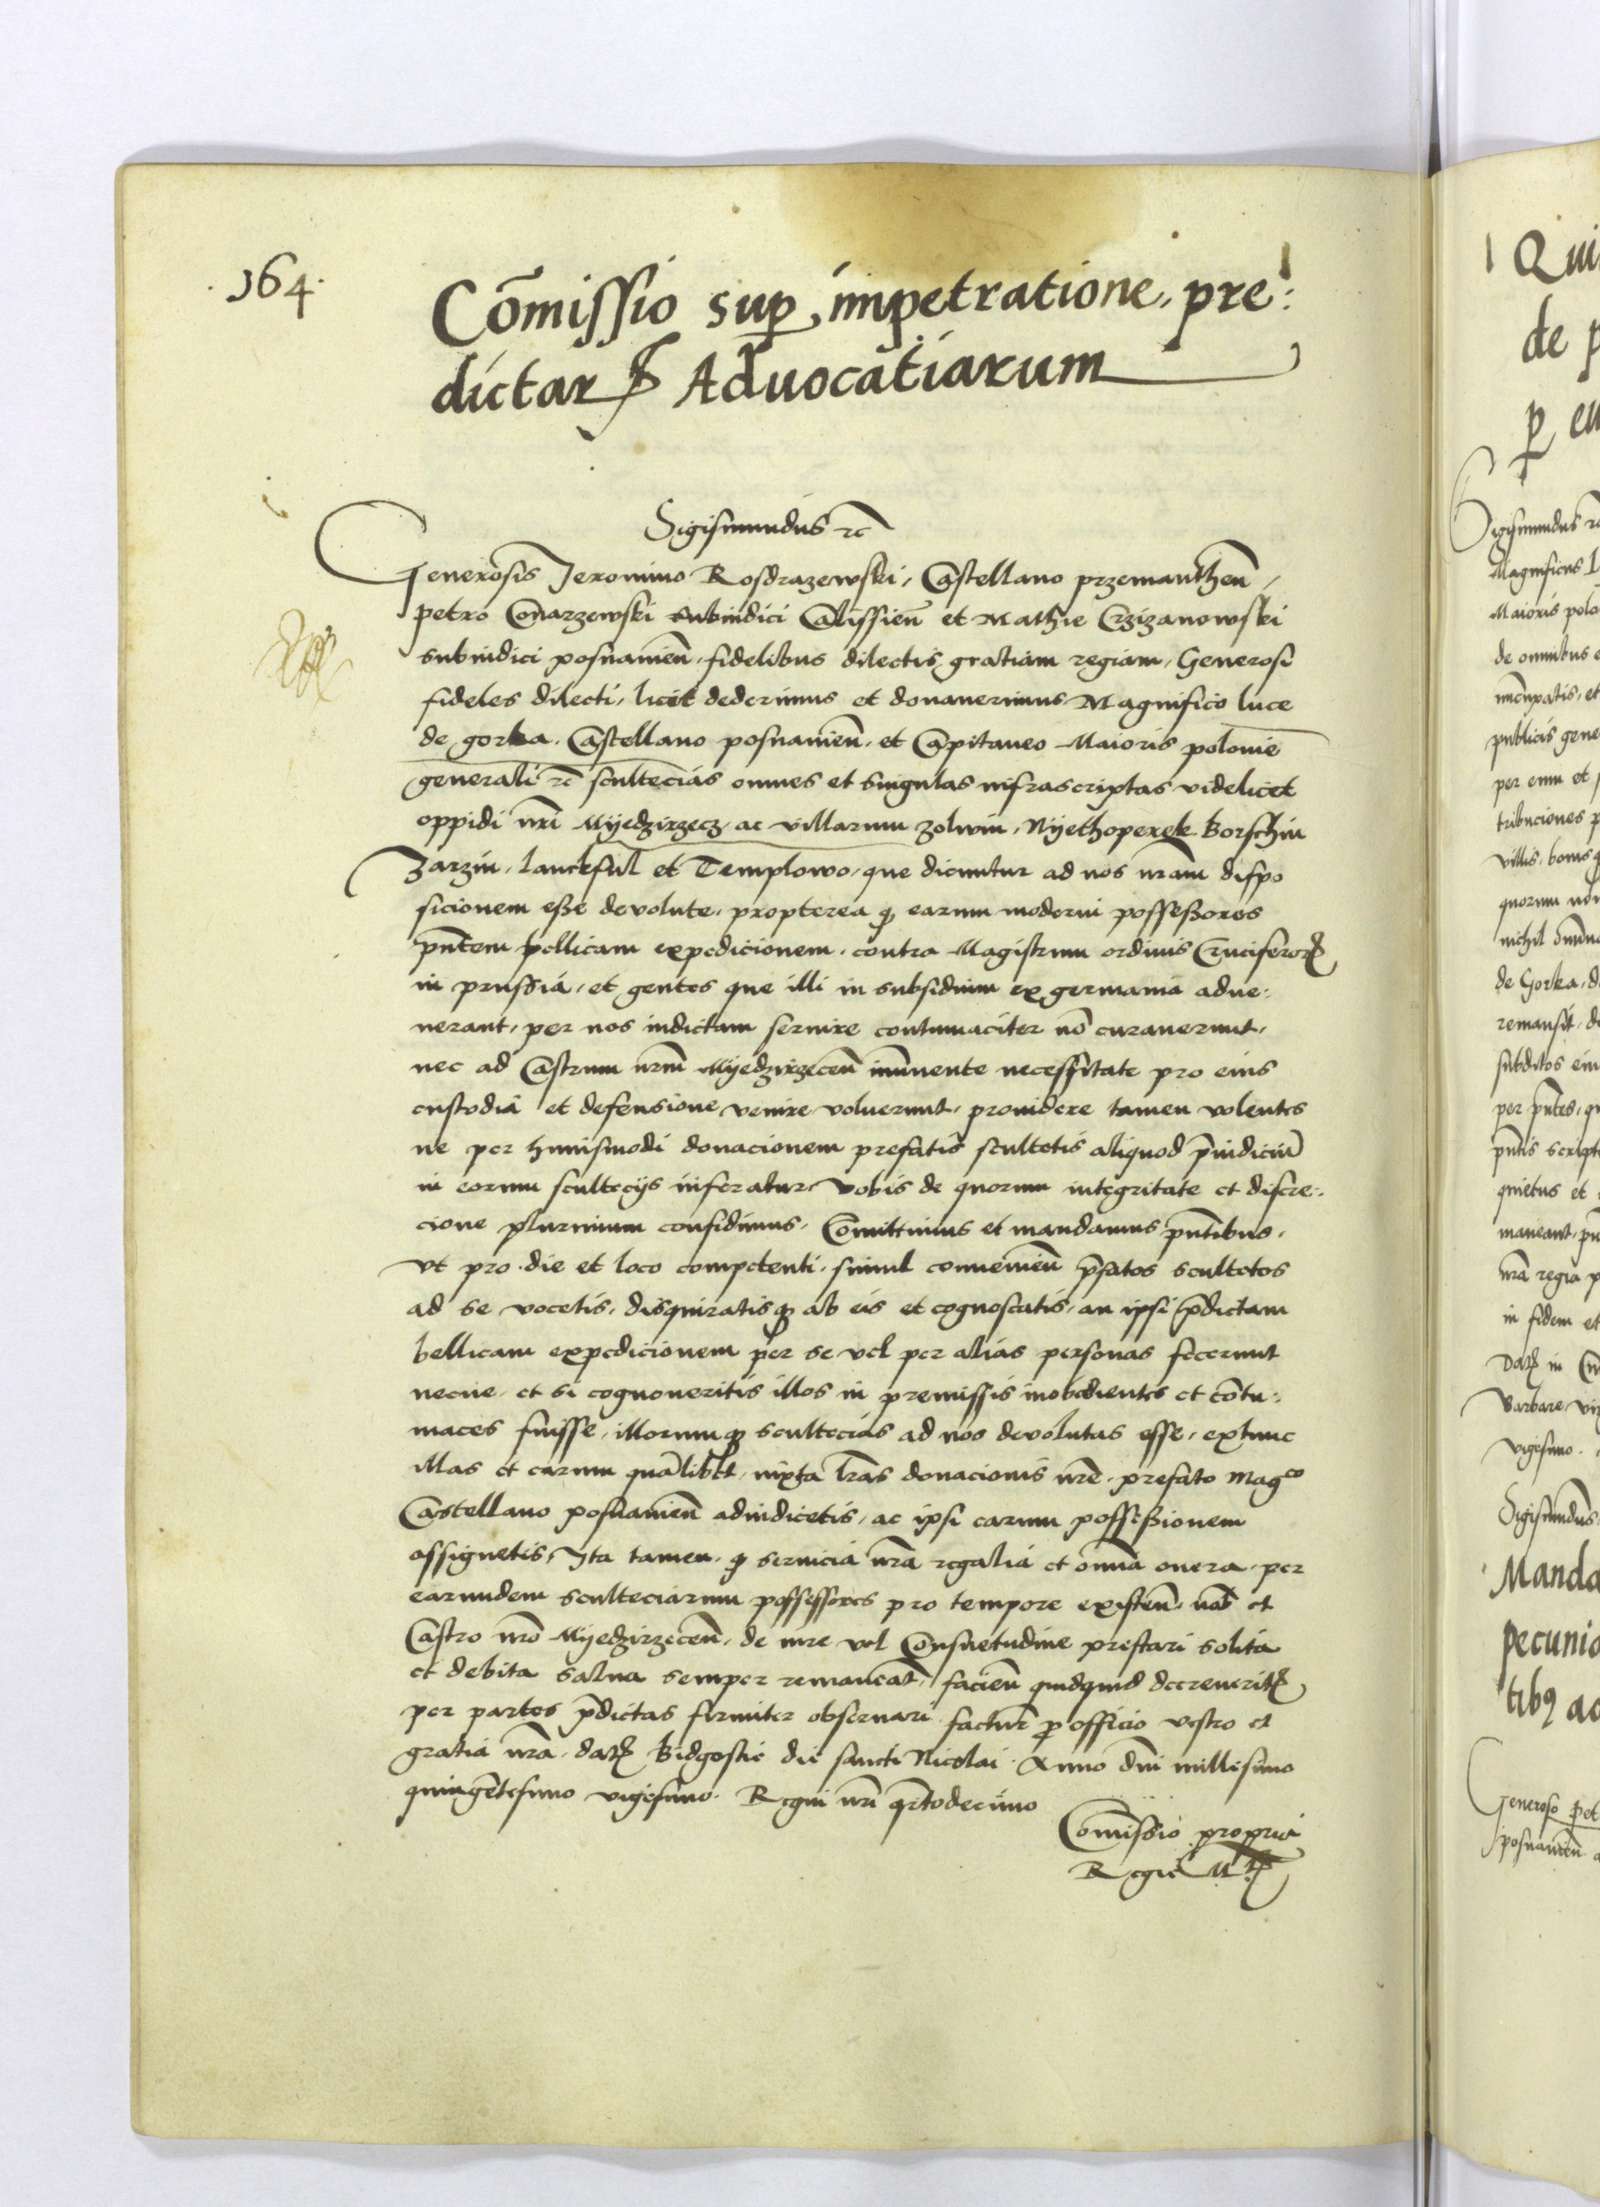 164.
Com̄issio sup̱ impetratione pre:
dictarꝝ Aduocatiarum
Sigismundus rc̄
Generosis Jeronimo Rosdrazewski, Castellano przemanthen̄,
petro Com̄arzewski subiudici Calissien̄ et Mathie Crzizanowski
subiudici posnanien̄, fidelibus dilectis gratiam regiam, Generosi
fideles dilecti, licet dederimus et donauerimus Magnifico luce
de gorka, Castellano posnanien̄, et Capitaneo Maioris polonie
generali rc̄ scultecias omnes et singulas infrascriptas videlicet
oppidi nr̄i Myedzirzecz, ac villarum zolwin, Nyethoperek Borschin
Zarzin, lanckful et Templowo, que dicuntur ad nos nr̄am dispo
sicionem esse deuolute, propterea ꝙ earum moderni possessores
pn̄tem bellicam expedicionem, contra Magistrum ordinis Cruciferorꝝ
in prussia, et gentes que illi in subsidium ex germania adue:
nerant, per nos indictam seruire contumaciter nō curauerunt,
nec ad Castrum nr̄m Myedzirzecen̄ imminente necessitate pro eius
custodia et defensione venire voluerunt, prouidere tamen volentes
ne per huiusmodi donacionem prefatis scultetis aliquod p̄iudiciū
in eorum sculteciis inferatur, vobis de quorum integritate et discre:
cione plurimum confidimus, Comittimus et mandamus pn̄tibus,
vt pro die et loco competenti, simul conuenien̄ p̄fatos scultetos
ad se vocetis, disquiratisqꝫ ab eis et cognoscatis, an ipsi p̄dictam
bellicam expedicionem per se vel per alias personas fecerunt
necne, et si cognoueritis illos in premissis inobedientes et cōtu:
maces fuisse, illorumqꝫ scultecias ad nos deuolutas esse, extunc
illas et earum quālibet, iuxta lr̄as donacionis nr̄e, prefato Magco
Castellano posnanien̄ adiudicetis, ac ipsi earum possessionem
assignetis, Ita tamen, ꝙ seruicia nr̄a regalia et om̄ia onera, per
earundem sculteciarum possessores pro tempore existen̄, nob̄ et
Castro nr̄o Myedzirzecen̄, de iure vel Consuetudine prestari solita
et debita salua semper remaneāt, facien̄ quidquid decreueritꝭ
per partes p̄dictas firmiter obseruari, factur̄ ꝓ officio vestro et
gratia nr̄a, datꝭ Bidgostie die sancti Nicolai, Anno dn̄i millesimo
quingētesimo vigesimo. Regni nr̄i q̄rtodecimo
Com̄issio propria
Regie Mtꝭ